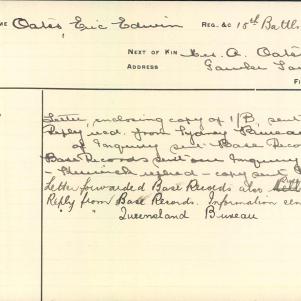 ME Oates, Eric Edwin REG. &c 15th Battl.
NEXT OF KIN Mrs. A. Oates
ADDRESS Gawler
FI
Letter, enclosing copy of 1/B, sent
Reply recd. from Sydney Bureau
of Inquiry sent Base Reco
Base Records sent our Inquiry
- copy sent
Letter forwarded Base Records also
Reply from Base Records. Information cen
" " Queensland Bureau